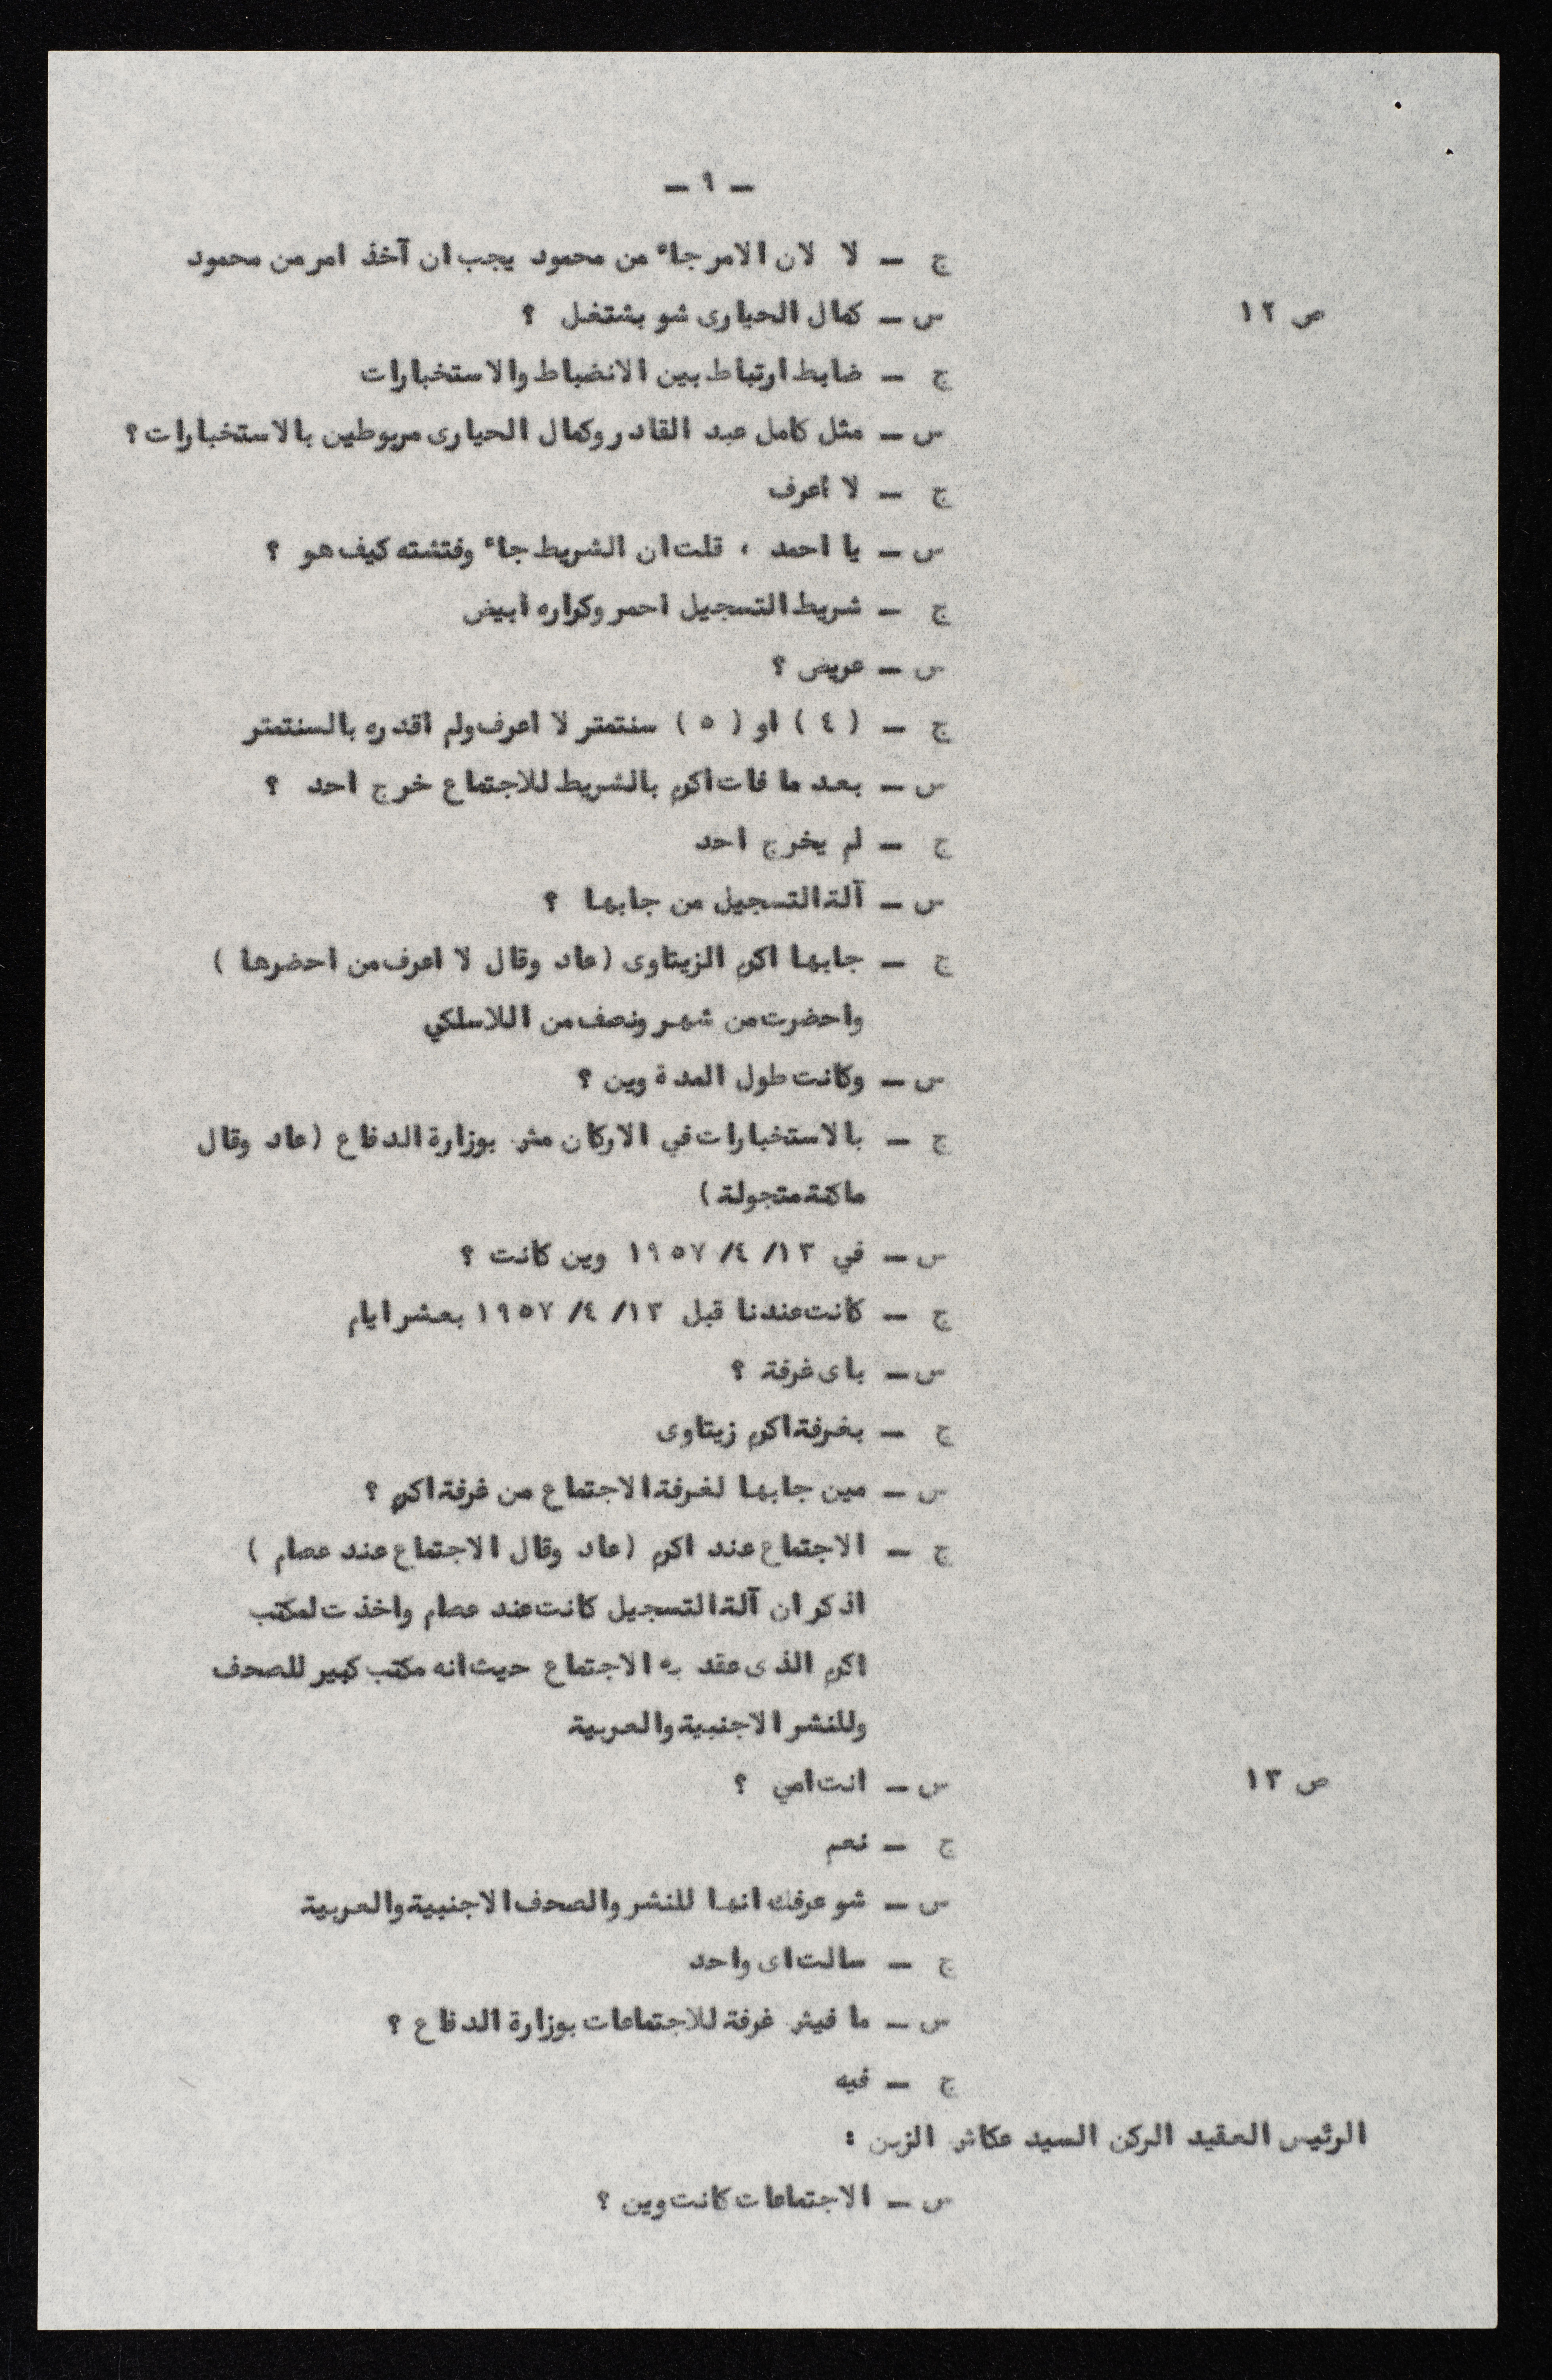 – ٩ –
ج – لا لان الامر جاء من محمود يجب ان آخذ امر من محمود
ص ١٢
س – كمال الحيارى شو بشتغل ؟
ج – ضابط ارتباط بين الانضباط والاستخبارات
س – مثل كامل عبد القادر وكمال الحيارى مربوطين بالاستخبارات ؟
ج – لا اعرف
س – يا احمد ، قلت ان الشريط جاء وفتشته كيف هو ؟
ج – شريط التسجيل احمر وكراره ابيض
س – عريض ؟
ج – ( ٤ ) او ( ٥ ) سنتمتر لا اعرف ولم اقدره بالسنتمتر
س – بعد ما فات اكرم بالشريط للاجتماع خرج احد ؟
ج – لم يخرج احد
س – آلة التسجيل من جابها ؟
ج – جابها اكرم الزيتاوى (عاد وقال لا اعرف من احضرها )
واحضرت من شهر ونصف من اللاسلكي
س – وكانت طول المدة وين ؟
ج – بالاستخبارات في الاركان مش بوزارة الدفاع (عاد وقال
ماكنة متجولة )
س – في ١٣/ ٤/ ١٩٥٧ وين كانت ؟
ج – كانت عندنا قبل ١٣/ ٤/ ١٩٥٧ بعشر ايام
س – باى غرفة ؟
ج – بغرفة اكرم زيتاوى
س – مين جابها لغرفة الاجتماع من غرفة اكرم ؟
ج – الاجتماع عند اكرم (عاد وقال الاجتماع عند عصام )
اذكر ان آلة التسجيل كانت عند عصام واخذت لمكتب
اكرم الذى عقد به الاجتماع حيث انه مكتب كبير للصحف
وللنشر الاجنبية والعربية
ص ١٣
س – انت امي ؟
ج – نعم
س – شو عرفك انها للنشر والصحف الاجنبية والعربية
ج – سالت اى واحد
س – ما فيش غرفة للاجتماعات بوزارة الدفاع ؟
ج – فيه
الرئيس العقيد الركن السيد عكاش الزبن :
س – الاجتماعات كانت وين ؟